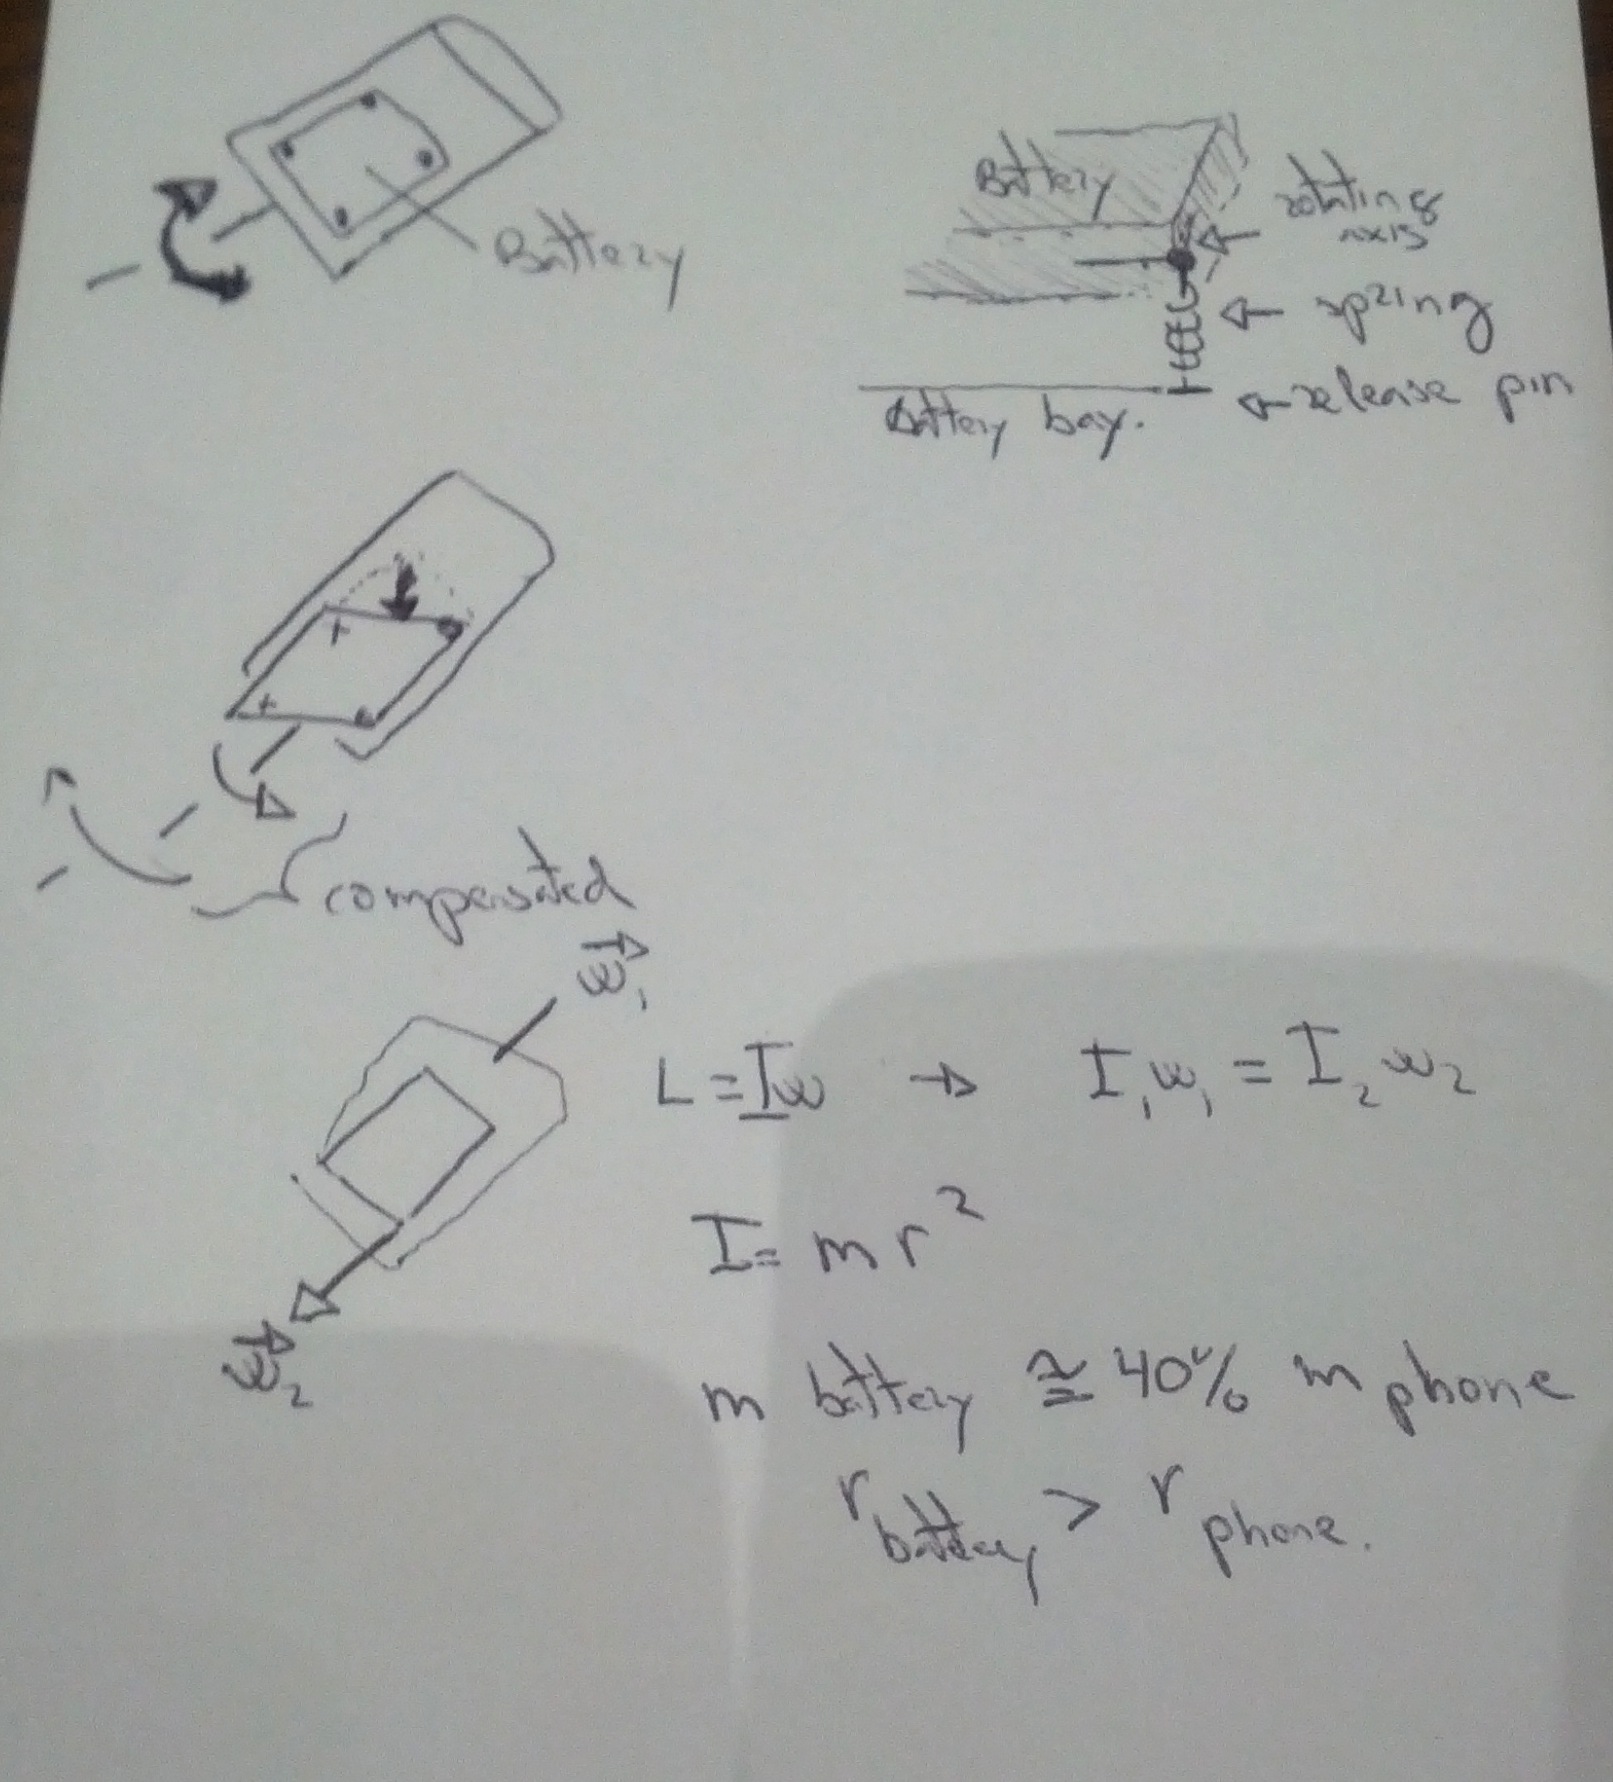 Battery
Battery
rotating
axis
spring
release pin
Battery bay.
+
+
compensated
ω⃗₁
L = Iω → I₁ω₁ = I₂ω₂
I = mr²
ω⃗₂
m battery ≅ 40% m phone
r battery > r phone.